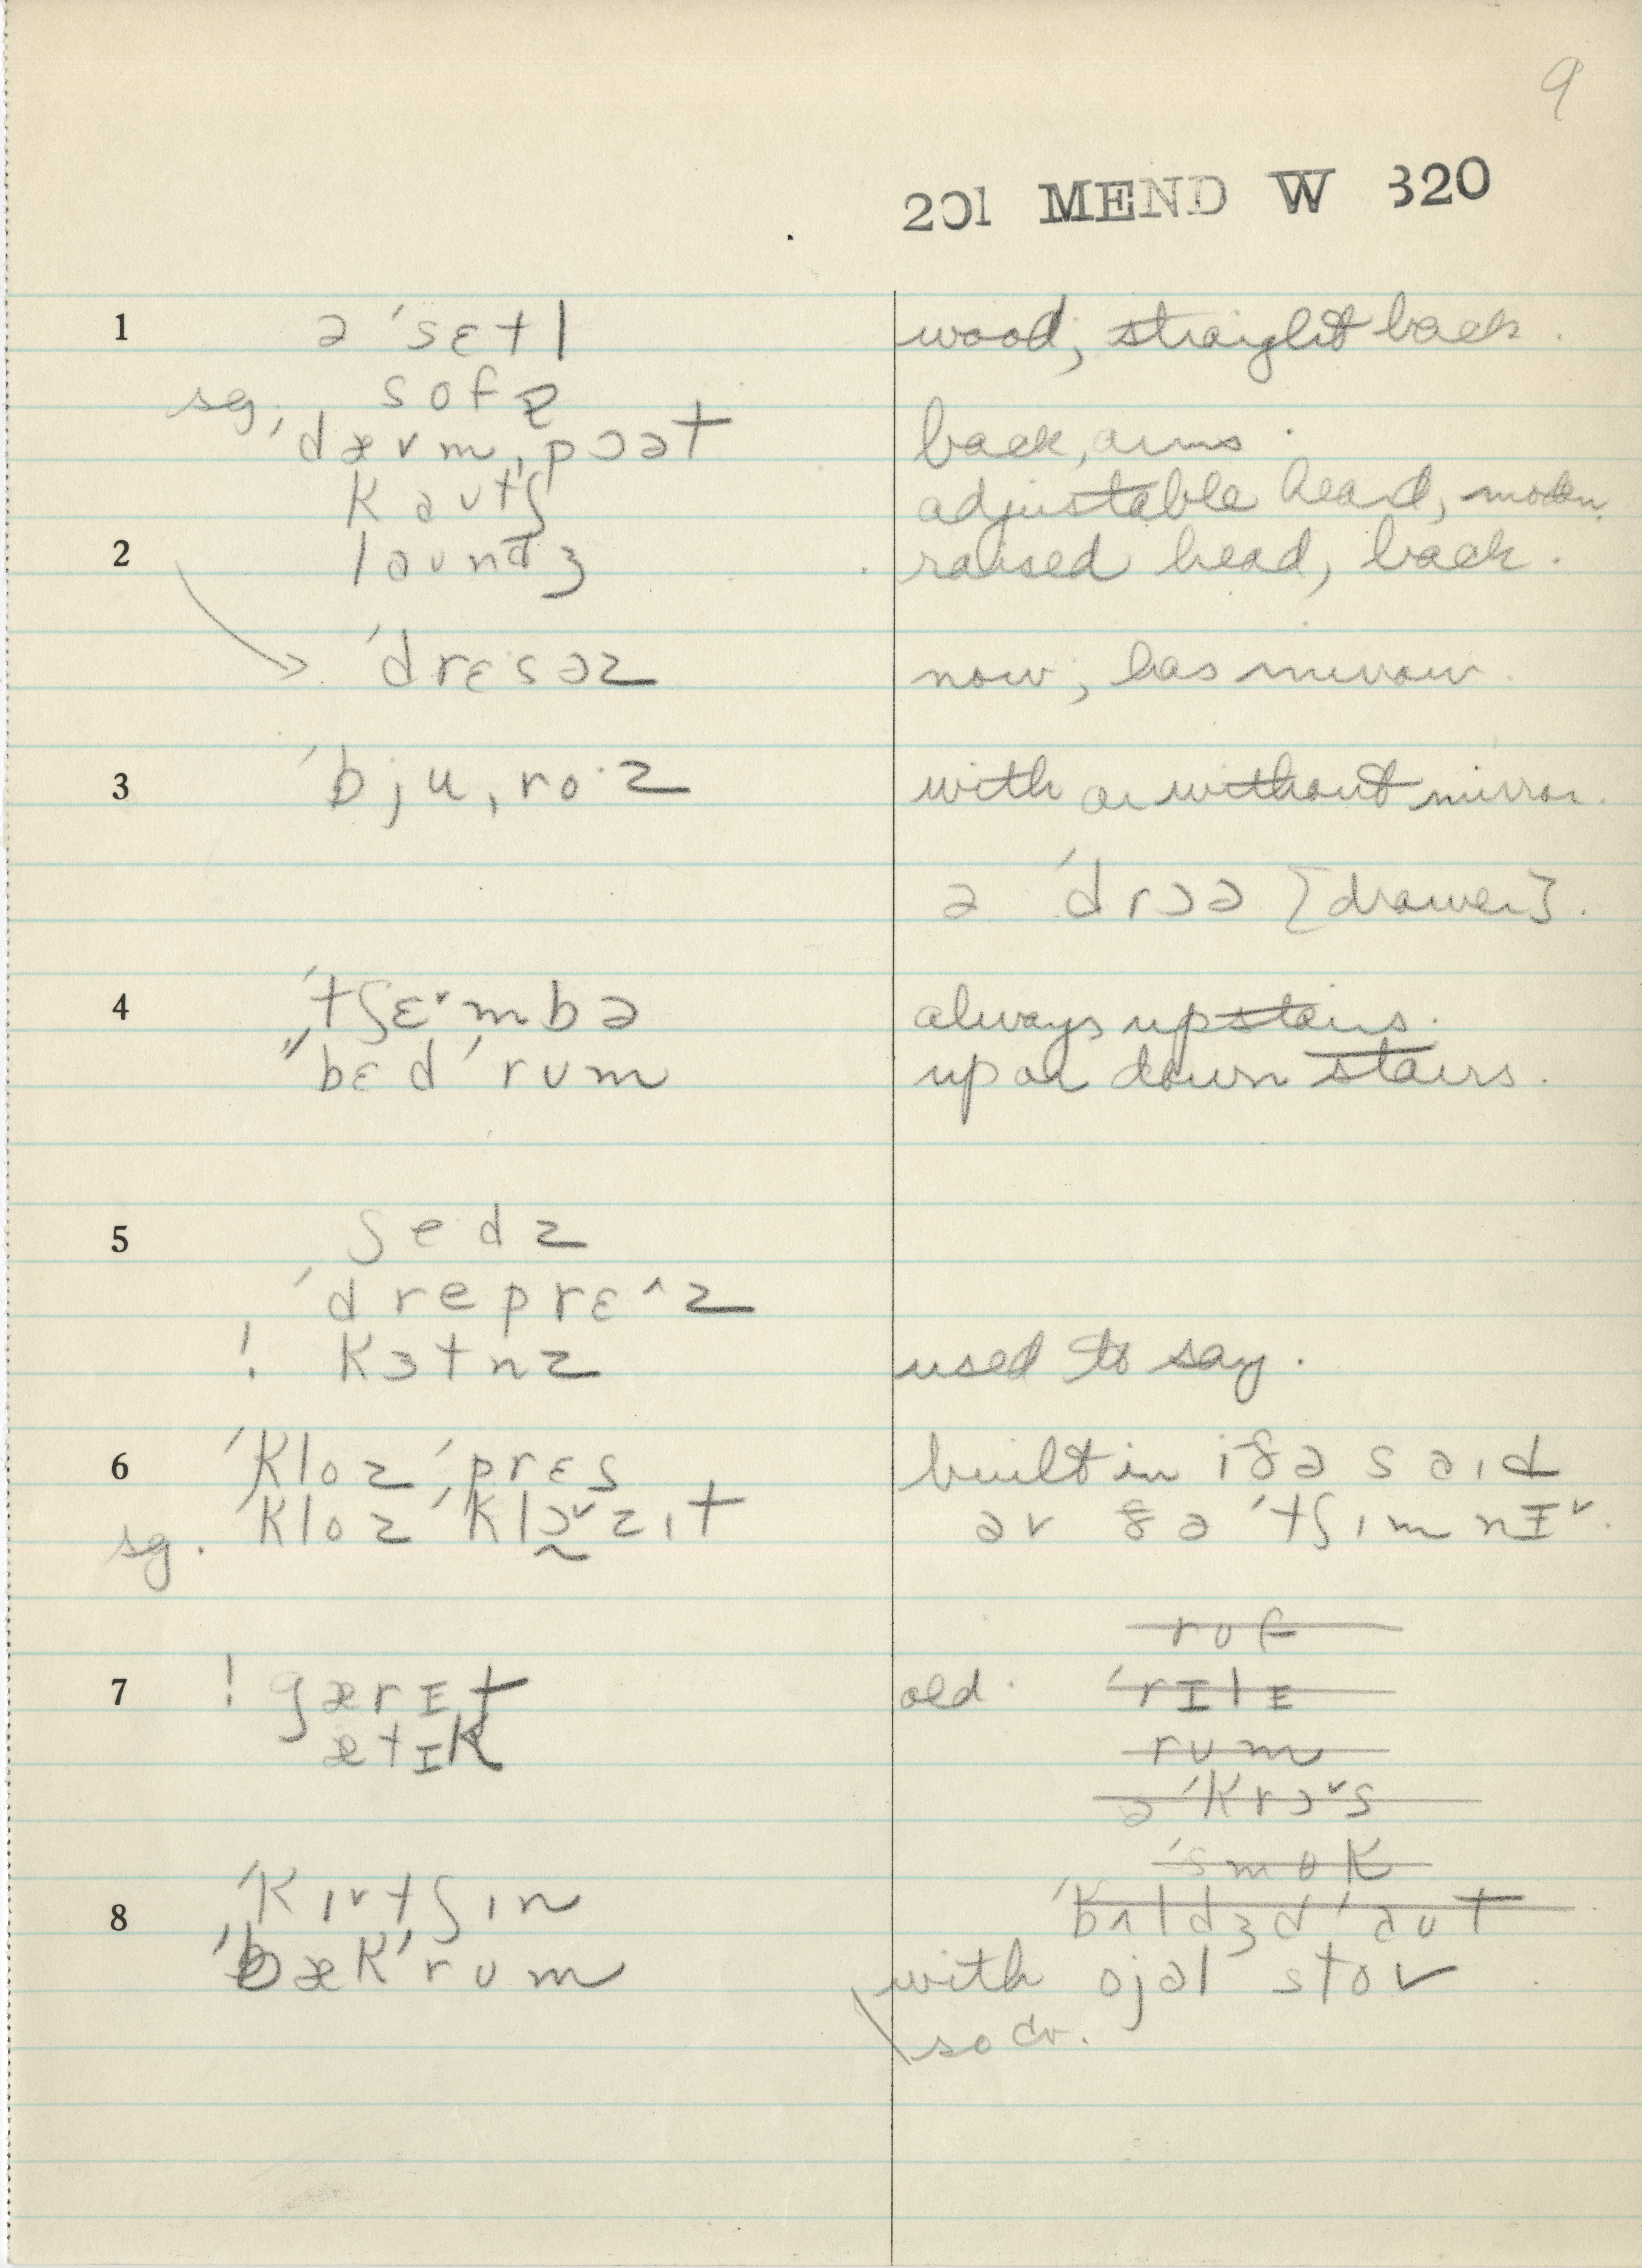 9
201 MEND W 320
1 ə ˈsɛtl wood; straight back.
sg. sofɐ
ˈdævmˌpɔət back, arms.
kautʃ adjustable head, modern.
2 laundʒ raised head, back.
ˈdrɛsəz now, has mirror.
3 ˈbjuˌro·z with or without mirror.
ə ˈdrɔə [drawer].
4 ˈtʃɛ˅mbə always upstairs.
"bɛdˈrum up or down stairs.
5 ʃedz
ˈdreprɛ^z
! kɜtnz used to say.
6 ˈklozˈprɛs built in ɪðə saɪd
sg. ˈklozˈklɔ˅zɪt əv ðə ˈtʃɪmnɪ˅.
ruf
7 ! gærɪt old. ˈrɪlɪ
ætɪk rum
əˈkrɔ˅s
ˈsmok
8 ˈkɪ˅tʃɪn ˈbʌldʒdˈaut
ˈbækˈrum with ojəl stov.
so dr.